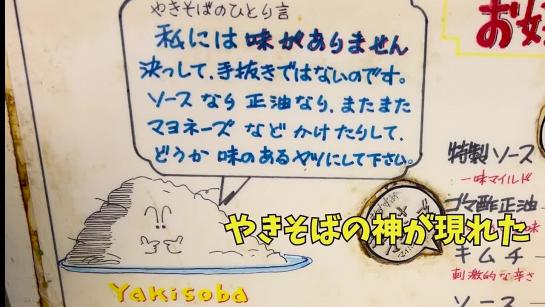 やきそばのひとり言
私には味がありません
決っして、手抜きではないのです。
ソースなら正油なり、またまた
マヨネーズなどかけたりして、
どうか味のあるヤツにして下さい。
お好
特製ソース
一味マイルド
ゴマ酢正油
キムチ
刺激的な辛さ
ソース
やきそばの神が現れた
Yakisoba